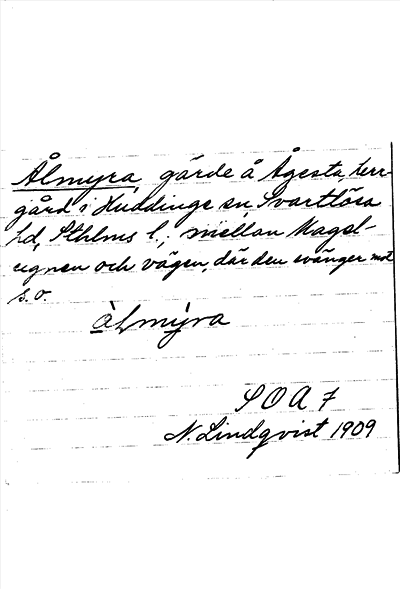 Ålmyra, gärde å Ågesta, herr-
gård i Huddinge sn, Svartlösa
hd, Sthlms l.; mellan Magel-
ungen och vägen, där den svänger mot
s. o.
àlmýra
S O A 7
N. Lindqvist 1909